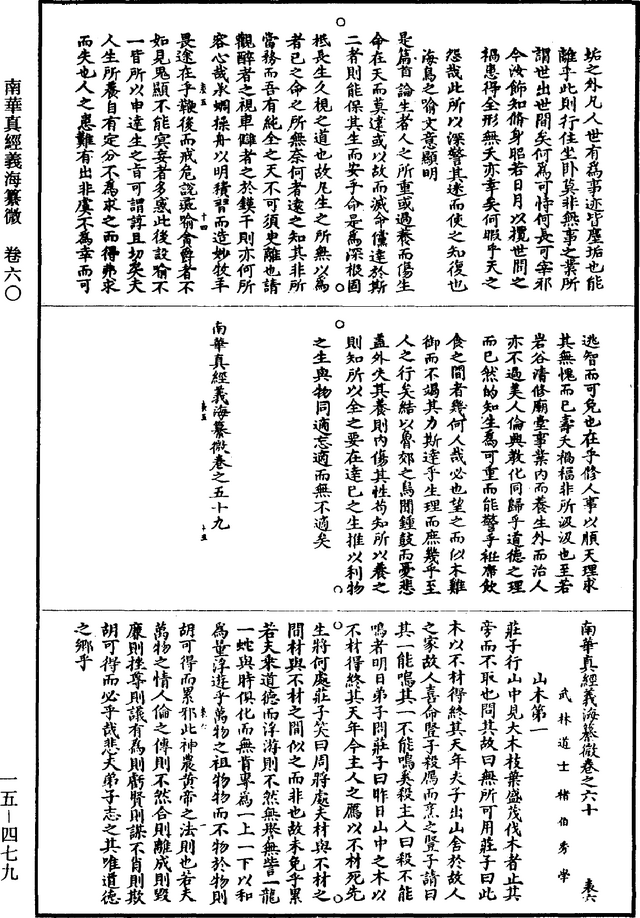 南華真經義海纂微　卷六〇
一五—四七九
垢之外凡人世有為事迹皆塵垢也能
離乎此則行住坐卧莫非無事之業所
謂世出世間矣何為可恃何長可宰邪
今汝飾知脩身昭若日月以攬世間之
禍患得全形無夭亦幸矣何暇乎天之
怨哉此所以深警其迷而使之知復也
海鳥之喻文意顯明
是篇首論生者人之所重或過養而傷生
命在天而莫違或以故而滅命儻達於斯
二者則能保其生而安乎命是為深根固
柢長生久視之道也故凡生之所無以為
者已之命之所無奈何者遠之知其非所
當務而吾有純全之天不可須臾離也請
觀醉者之視車讎者之於鏌干則亦何所
容心哉承蜩操舟以明積習而造妙牧羊
畏途在乎鞭後而戒危說彘喻畣爵者不
如見鬼顯不能寘妄者多惑此後設喻不
一皆所以申達生之旨可謂諄且切矣夫
人生所養自有定分不為求之而得弗求
而失也人之患難有出非虞不為幸而可
逃智而可免也在乎修人事以順天理求
其無愧而已壽夭禍福非所汲汲也至若
岩谷清修廟臺事業內而養生外而治人
亦不過美人倫興教化同歸乎道德之理
而已然的知生為可重而能警乎衽席飲
食之間者幾何人哉必也望之而似木雞
御而不竭其力斯達乎生理而庶幾乎至
人之行矣結以魯郊之鳥聞鍾鼓而憂悲
蓋外失其養則內傷其性苟知所以養之
則知所以全之要在達已之生推以利物
之生與物同適忘適而無不適矣
南華真經義海纂微卷之五十九
南華真經義海纂微卷之六十　表六
武林道士褚伯秀學
山木第一
莊子行山中見大木枝葉盛茂伐木者止其
旁而不取也問其故曰無所可用莊子曰此
木以不材得終其天年夫子出山舍於故人
之家故人喜命豎子殺鴈而烹之豎子請曰
其一能鳴其一不能鳴奚殺主人曰殺不能
鳴者明日弟子問莊子曰昨日山中之木以
不材得終其天年今主人之鴈以不材死先
生將何處莊子笑曰周將處夫材與不材之
間材與不材之間似之而非也故未免乎累
若夫乘道德而浮游則不然無譽無訾一龍
一蛇與時俱化而無肯專為一上一下以和
為量浮遊乎萬物之祖物物而不物於物則
胡可得而累邪此神農黃帝之法則也若夫
萬物之情人倫之傳則不然合則離成則毀
廉則挫尊則議有為則虧賢則謀不肖則欺
胡可得而必乎哉悲夫弟子志之其唯道德
之鄉乎